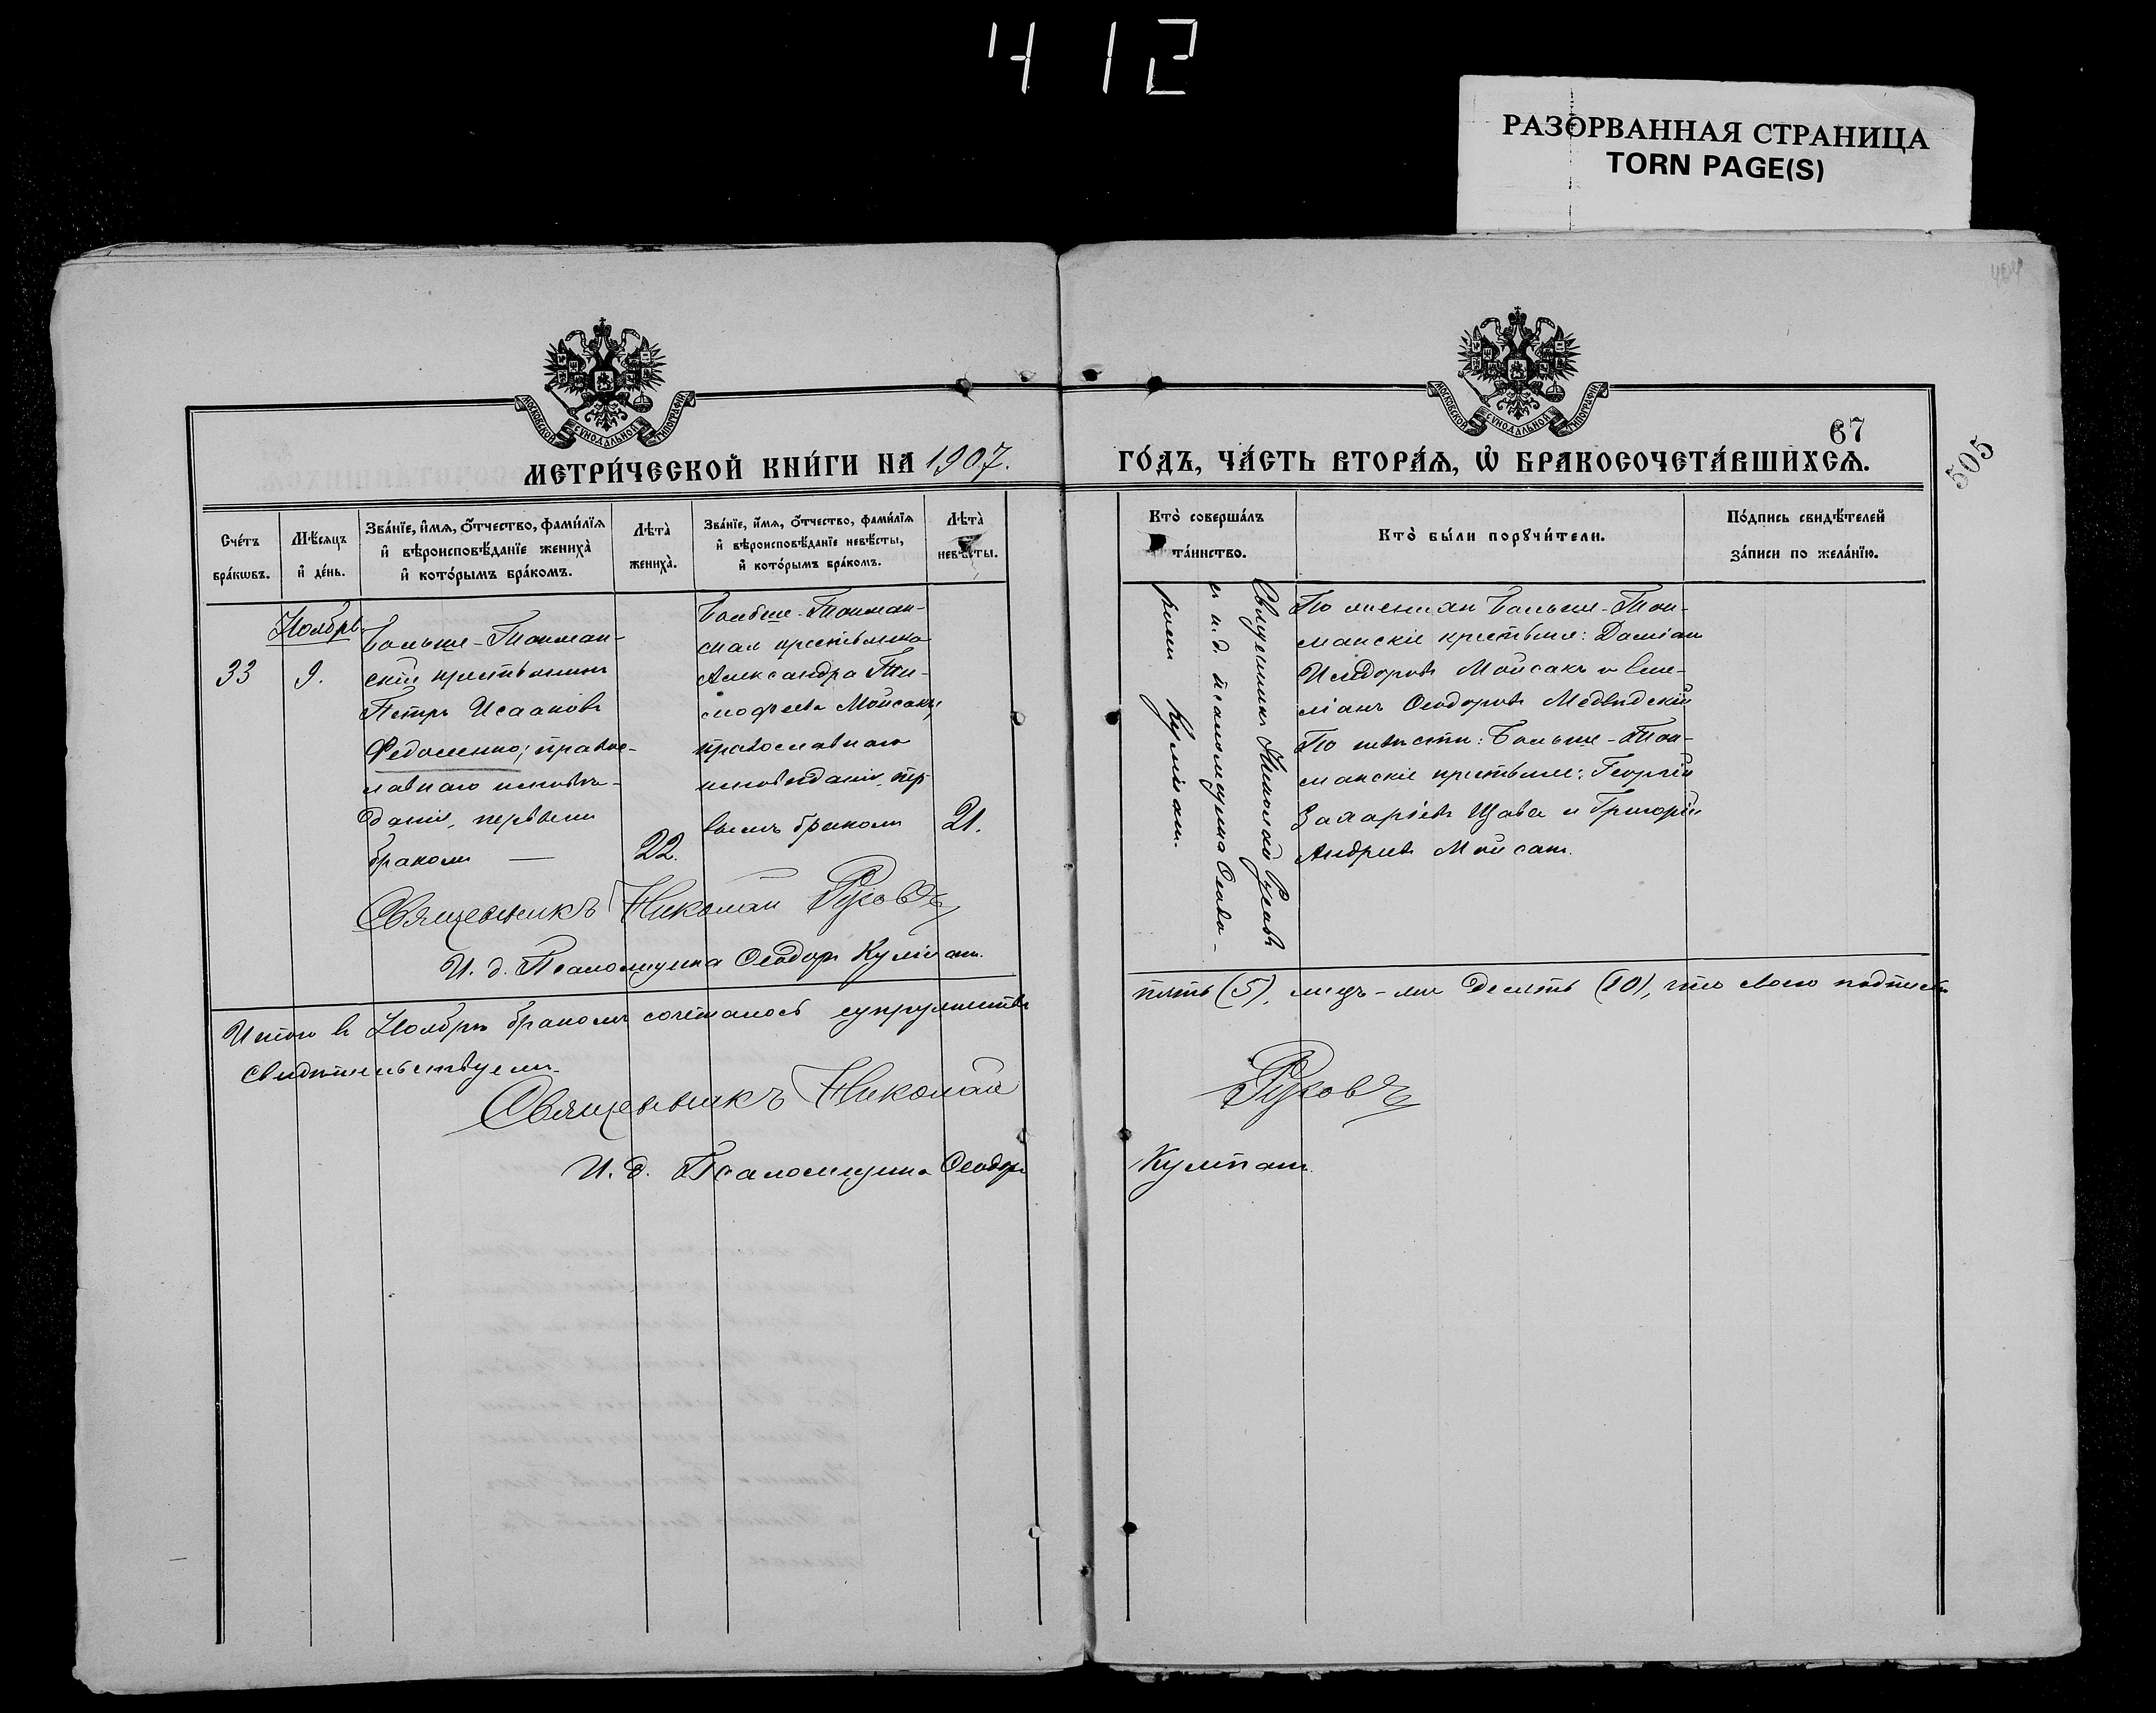 412
РАЗОРВАННАЯ СТРАНИЦА
TORN PAGE(S)
404
МОСКОВСКОЙ СѴНОДАЛЬНОЙ ТИПОГРАФІИ
МОСКОВСКОЙ СѴНОДАЛЬНОЙ ТИПОГРАФІИ
67
505
МЕТРИ́ЧЕСКОЙ КНИ́ГИ НА 1907.
ГО́ДЪ, ЧА́СТЬ ВТОРА́Ѧ, Ѽ БРАКОСОЧЕТА́ВШИХСѦ.
Сче́тъ
бра́кѡвъ.
Мѣ́сяцъ
и де́нь.
Зва́нїе, и́мѧ, ѻ́тчество, фами́лїѧ
и҆ вѣроисповѣ́данїе жениха̀
и҆ кото́рымъ бра́комъ.
Лѣта̀
жениха̀.
Зва́нїе, и́мѧ, ѻ́тчество, фами́лїѧ
и҆ вѣроисповѣ́данїе невѣ́сты,
и҆ кото́рымъ бра́комъ.
Лѣта̀
невѣ́сты.
Кто̀ соверша́лъ
та́инство.
Кто̀ бы́ли порꙋчи́тели.
По́дпись свидѣ́телей
за́писи по жела́нїю.
Ноябрь
33
9.
Больше-Токмак-
скій крестьянинъ
Петръ Исааковъ
Федоленко; правос-
лавнаго исповѣ-
данія, первымъ
бракомъ —
22.
Больше-Токмак-
ская крестьянка
Александра Ти-
мофеева Мойсакъ,
православнаго
исповѣданія, пер-
вымъ бракомъ
21.
Священникъ Николай Русовъ
и и. д. псаломщика Ѳеодо-
ромъ
По женихѣ Больше-Ток-
макскіе крестьяне: Даміанъ
Исидоровъ Мойсакъ и Еми-
ліанъ Ѳеодоровъ Медвѣдскій
По невѣстѣ: Больше-Ток-
макскіе крестьяне: Георгій
Захаріевъ Щава и Григорій
Андреевъ Мойсакъ.
Священникъ Николай Русовъ
И. д. Псаломщика Ѳеодоръ
Итого въ Ноябрѣ бракомъ сочеталось супружествъ
пять (5), лицъ-же десять (10), что своею подписью
свидѣтельствуемъ.
Священникъ Николай Русовъ
И. д. Псаломщика Ѳеодоръ